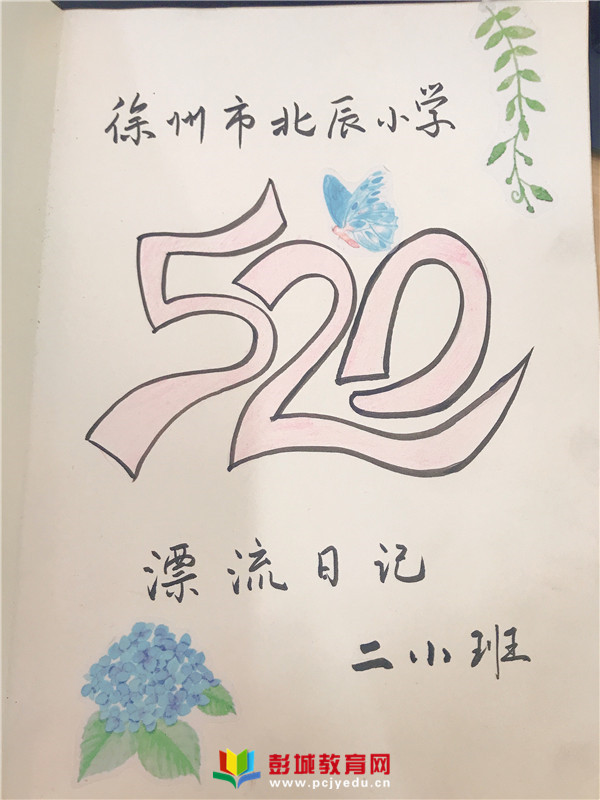 徐州市北辰小学
520
漂流日记
二小班
彭城教育网
www.pcjyedu.cn